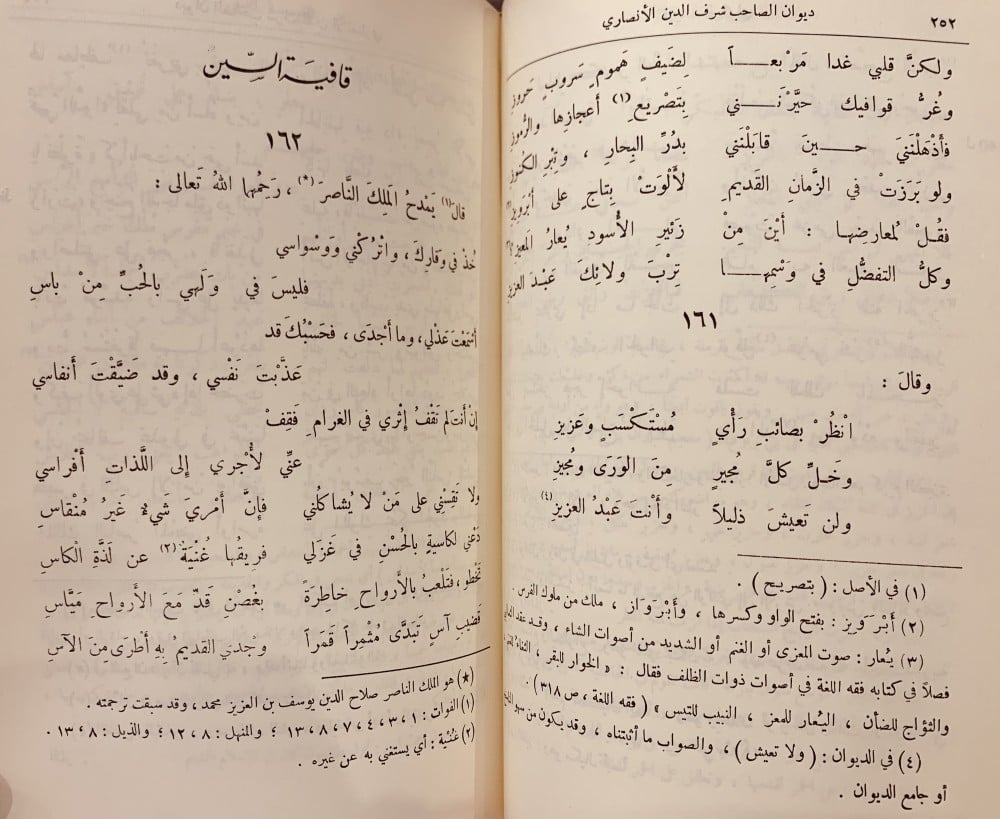 ٢٥٢
ديوان الصاحب شرف الدين الأنصاري
ولكنَّ قلبي غدا مَرْبعـــاً لِضَيفِ هَمومٍ سَروبٍ حَروزِ
وغُرُّ قوافيك حيَّرْنَـــني بِتَصْريعِ (١) أعجازِها والرُّموزِ
فأذْهَلْنَنيَ حـــينَ قابَلْنَني بدُرِّ البِحارِ ، وتِبْرِ الكُنوزِ
ولو بَرَزَتْ في الزَّمانِ القَديمِ لأَلْوَتْ بِتاجٍ على أَبْرَوِيزِ (٢)
فقُلْ لمُعارضِهـا : أَيْنَ مِنْ زَئيرِ الأُسودِ يُعارُ المَعيزِ (٣)؟
وكلُّ التفضُّلِ في وَسْمِهـــا تِرْبَ ولائِكَ عَبْـدَ العزيزِ
١٦١
وقالَ :
انْظُرْ بصائبِ رَأْيٍ مُسْتَكْسَبٍ وعَزيزِ
وخَـلِّ كلَّ مُجيرٍ مِنَ الوَرَى ومُجيزِ
ولن تَعيشَ ذليلاً وأَنْتَ عَبْدُ العزيزِ (٤)
(١) في الأصل : ( بتصريح ) .
(٢) أَبْرَوِيز : بفتح الواو وكسرها ، وأَبْرَوَاز ، ملك من ملوك الفرس .
(٣) يُعار : صوت المعزى أو الغنم أو الشديد من أصوات الشاء ، وقد عقد الثعالبي
فصلاً في كتابه فقه اللغة في أصوات ذوات الظلف فقال : « الخوار للبقر ، الثغاء للغنم
والثؤاج للضأن ، اليُعار للمعز ، النبيب للتيس » ( فقه اللغة ، ص ٣١٨ ) .
(٤) في الديوان : ( ولا تعيش ) ، والصواب ما أثبتناه ، وقد يكون من سهو
أو جامع الديوان .
قافيـة السـين
١٦٢
قالَ (١) يَمْدحُ المَلِكَ النَّاصرَ (*) ، رَحِمُهما اللهُ تَعالى :
خُذْ في وَقارِكَ ، واتْرُكْني وَوَسْواسي
فليسَ في وَلَهي بالحُبِّ مِنْ باسِ
أسْمَعْتَ عَذْلي ، وما أَجْدَى ، فحَسْبُكَ قد
عَذَّبْتَ نَفْسي ، وقد ضَيَّقْتَ أَنفاسي
إنْ أَنتَ لم تَقْفُ إثْري في الغرامِ فَقِفْ
عنِّي لأُجْري إلى اللَّذاتِ أَفْراسي
ولا تَقِسْني على مَنْ لا يُشاكلُني فإنَّ أَمْريَ شَيءٌ غَيرُ مُنْقاسِ
دَعْني لكاسيةٍ بالحُسْنِ في غَزَلي فرِيقُها غُنْيَةٌ (٢) عن لَذَّةِ الكاسِ
تَخطو ، فتَلعبُ بالأَرواحِ خاطِرَةً بغُصْنِ قَدٍّ مَعَ الأرواحِ مَيَّاسِ
قَضيبِ آسٍ تَبَدَّى مُثْمِراً قَمَراً وجْدي القديمُ بهِ أَطْرَى مِنَ الآسِ
(★) هو الملك الناصر صلاح الدين يوسف بن العزيز محمد ، وقد سبقت ترجمته .
(١) الفوات : ١ ، ٣ ، ٤ ، ٧ ، ٨ ، ١٣ ؛ والمنهل : ٨ ، ١٢ ؛ والذيل : ٨ ، ١٣ .
(٢) غُنْيَة : أي يستغني به عن غيره .